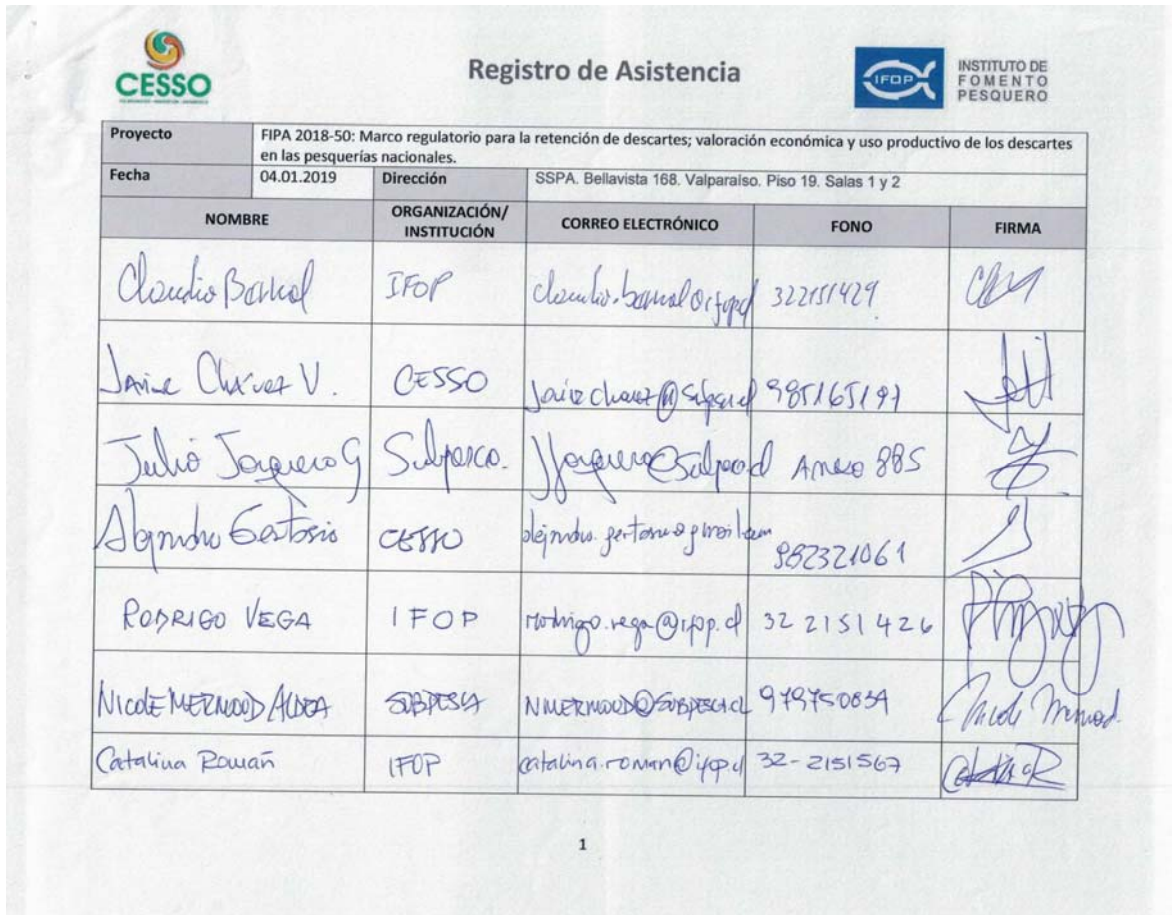 CESSO
Registro de Asistencia
IFOP
INSTITUTO DE
FOMENTO
PESQUERO
Proyecto
FIPA 2018-50: Marco regulatorio para la retención de descartes; valoración económica y uso productivo de los descartes
en las pesquerías nacionales.
Fecha 04.01.2019 Dirección SSPA. Bellavista 168. Valparaíso. Piso 19. Salas 1 y 2
NOMBRE ORGANIZACIÓN/ INSTITUCIÓN CORREO ELECTRÓNICO FONO FIRMA
Claudio IFOP 322151429
Chávez V. CESSO 985165197
Julio Jorquera G Subpesca. Anexo 885
Alejandro Gertosio CESSO 982321061
RODRIGO VEGA IFOP rodrigo.vega@ifop.cl 32 2151426
NICOLE MERMOUD ALDEA SUBPESCA NMERMOUD@SUBPESCA.CL 979750834
Catalina Román IFOP catalina.roman@ifop.cl 32-2151567
1